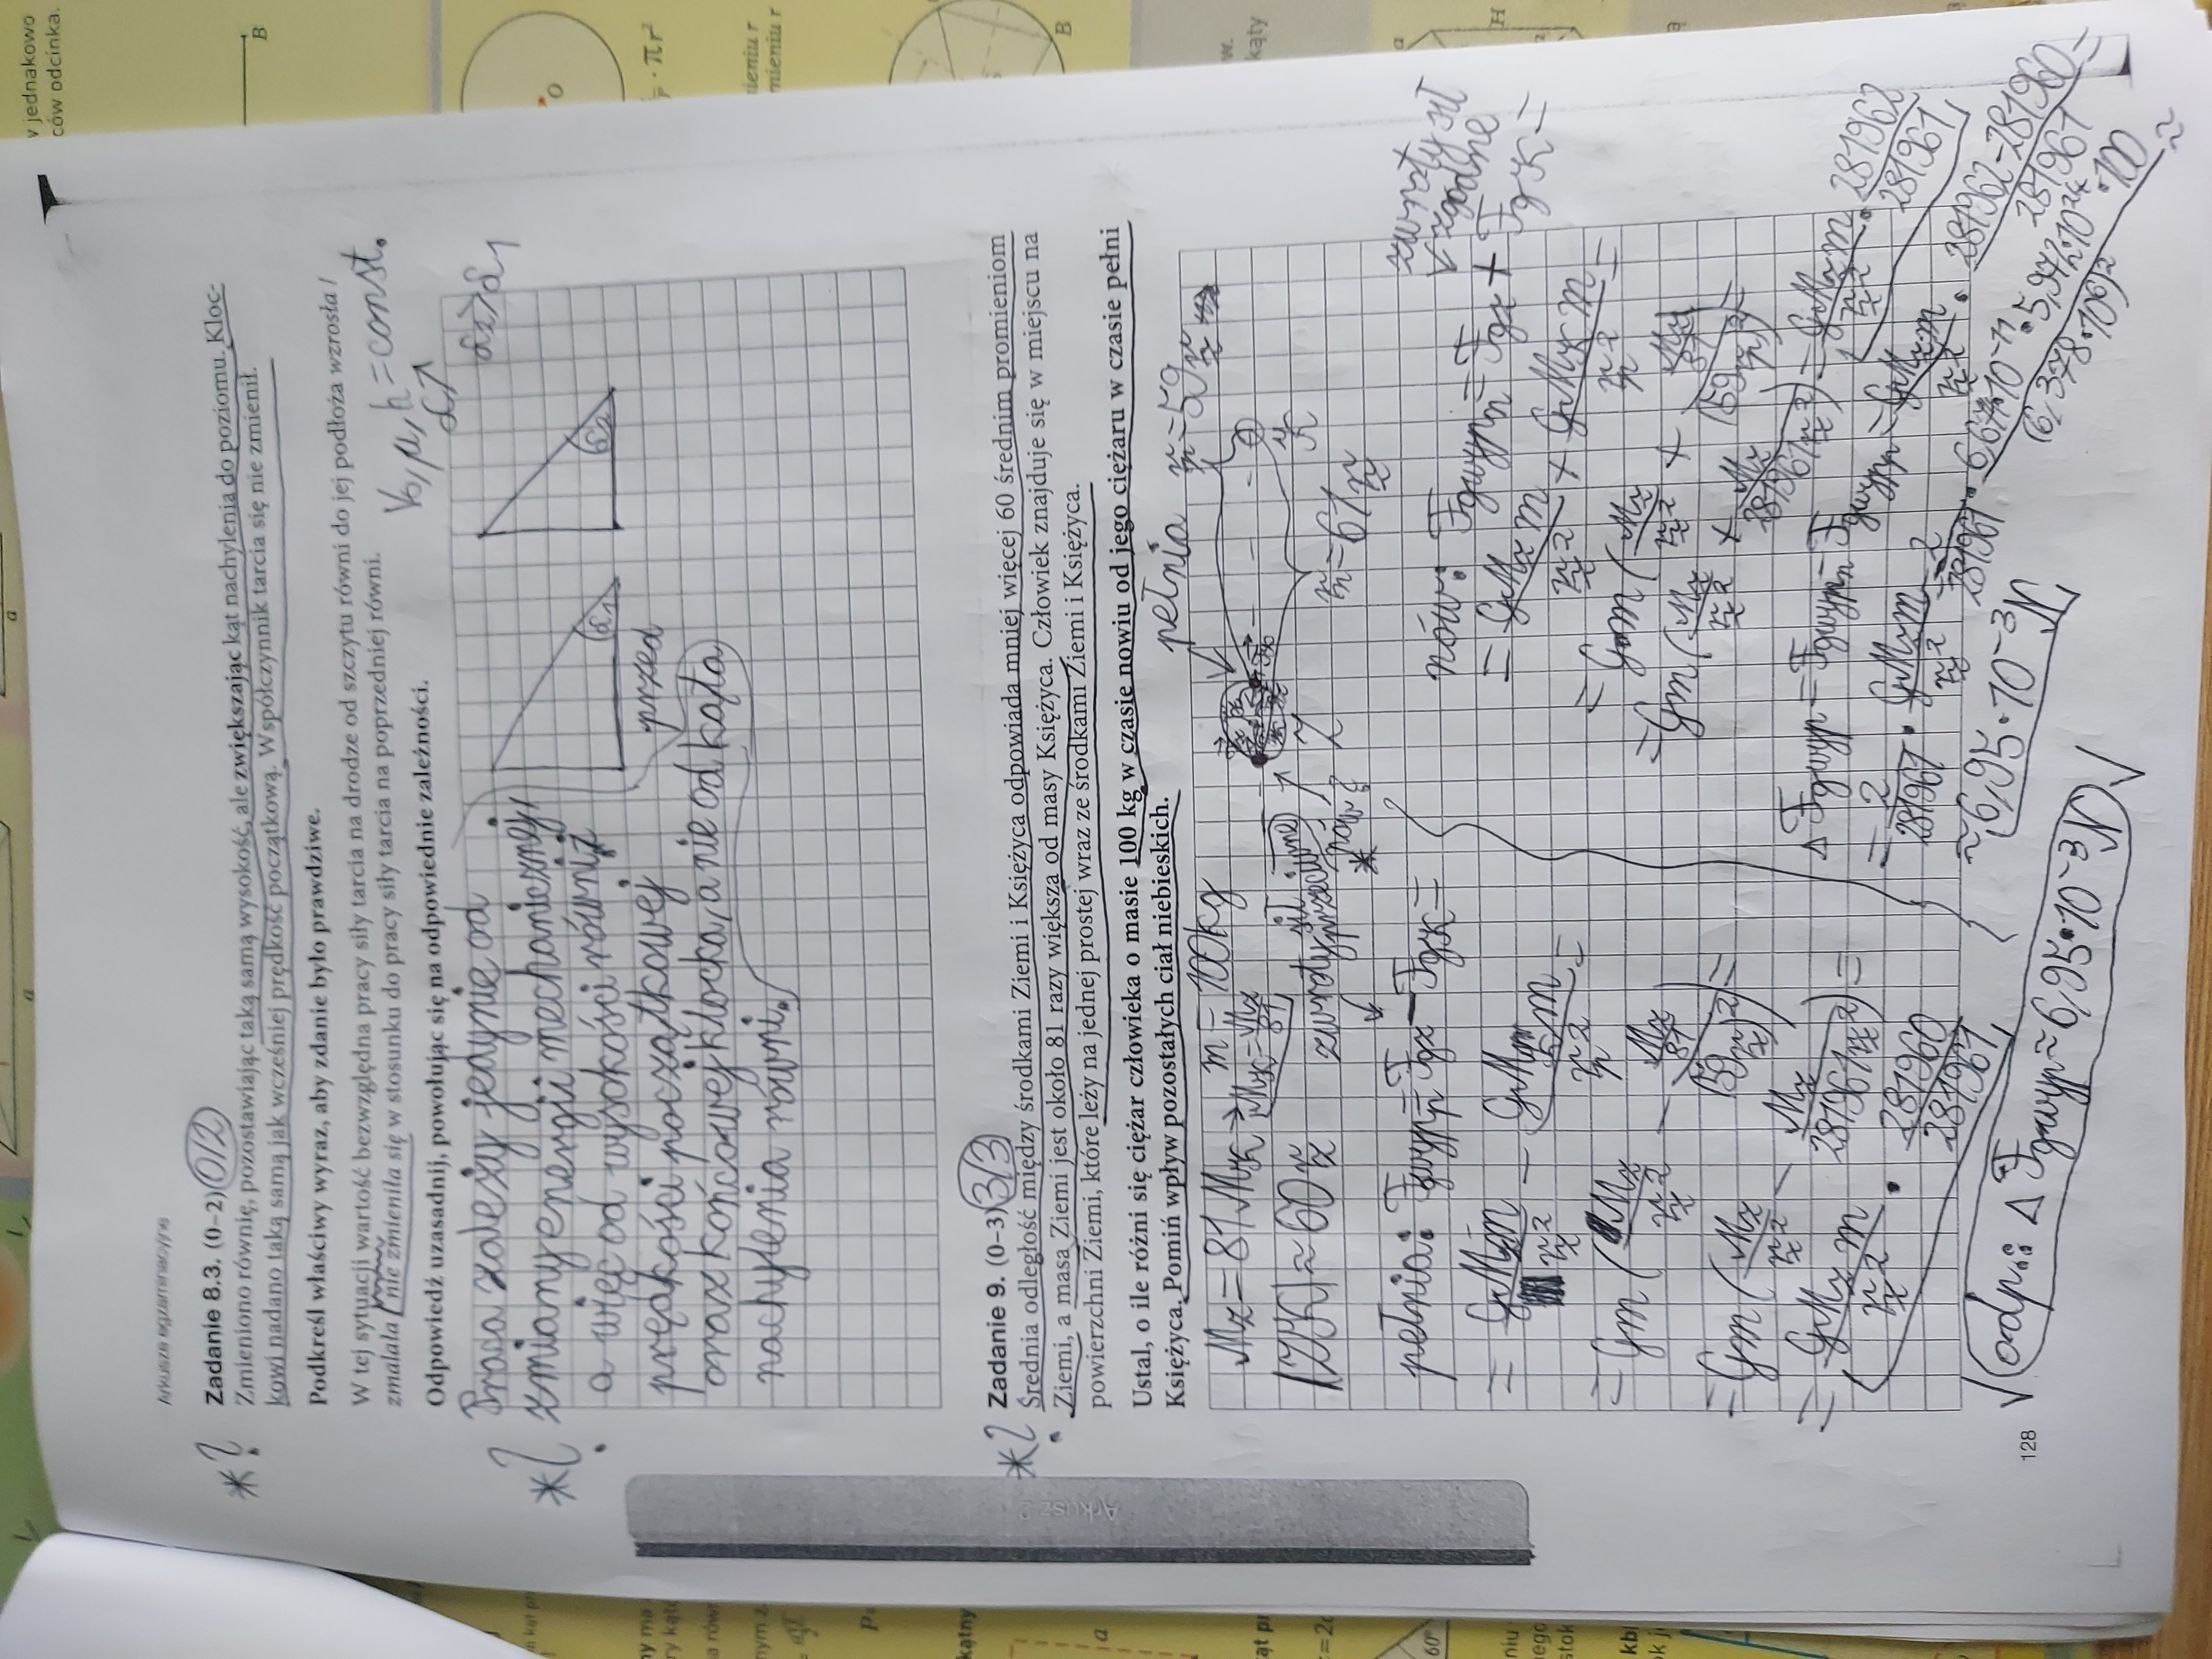 Arkusze egzaminacyjne
*?
Zadanie 8.3. (0–2) 0/2
Zmieniono równię, pozostawiając taką samą wysokość, ale zwiększając kąt nachylenia do poziomu. Kloc-
kowi nadano taką samą jak wcześniej prędkość początkową. Współczynnik tarcia się nie zmienił.
Podkreśl właściwy wyraz, aby zdanie było prawdziwe.
W tej sytuacji wartość bezwzględna pracy siły tarcia na drodze od szczytu równi do jej podłoża wzrosła /
zmalała / nie zmieniła się w stosunku do pracy siły tarcia na poprzedniej równi.
V₀, μ, h = const.
α↗
Odpowiedź uzasadnij, powołując się na odpowiednie zależności.
α₂>α₁
*?
Praca zależy jedynie od
zmiany energii mechanicznej,
a więc od wysokości równi,
prędkości początkowej
oraz końcowej klocka, a nie od kąta
nachylenia równi.
przed
α₁
α₂
*?
Zadanie 9. (0–3) 3/3
Średnia odległość między środkami Ziemi i Księżyca odpowiada mniej więcej 60 średnim promieniom
Ziemi, a masa Ziemi jest około 81 razy większa od masy Księżyca. Człowiek znajduje się w miejscu na
powierzchni Ziemi, które leży na jednej prostej wraz ze środkami Ziemi i Księżyca.
Ustal, o ile różni się ciężar człowieka o masie 100 kg w czasie nowiu od jego ciężaru w czasie pełni
Księżyca. Pomiń wpływ pozostałych ciał niebieskich.
m = 100kg
pełnia
Mz = 81Mk → Mk = Mz/81
|ZK| ≈ 60rz
zwroty sił
przeciwne
nów
Z
K
r = 61rz
pełnia: Fgwyp = Fgz − Fgk =
= GMzm/rz² − GMkm/r² =
= Gm(Mz/rz² − (Mz/81)/(59rz)²) =
= Gm(Mz/rz² − Mz/281961rz²) =
= GMzm/rz² · 281960/281961
nów: Fgwypn = Fgz + Fgk =
zwroty są
zgodne
= GMzm/rz² + GMkm/r² =
= Gm(Mz/rz² + (Mz/81)/(59rz)²) =
= Gm(Mz/rz² + Mz/281961rz²) = GMzm/rz² · 281962/281961
ΔFgwyp = Fgwypn − Fgwyp = GMzm/rz² · (281962−281960)/281961 =
= 2/281961 · GMzm/rz² = 2/281961 · 6,67·10⁻¹¹ · 5,972·10²⁴ · 100/(6,378·10⁶)² ≈
≈ 6,95·10⁻³N
odp.: ΔFgwyp ≈ 6,95·10⁻³N √
128
Arkusz 2
v jednakowo
ców odcinka.
B
O
· πr²
mieniu r
B
w.
kąty
H
a
60°